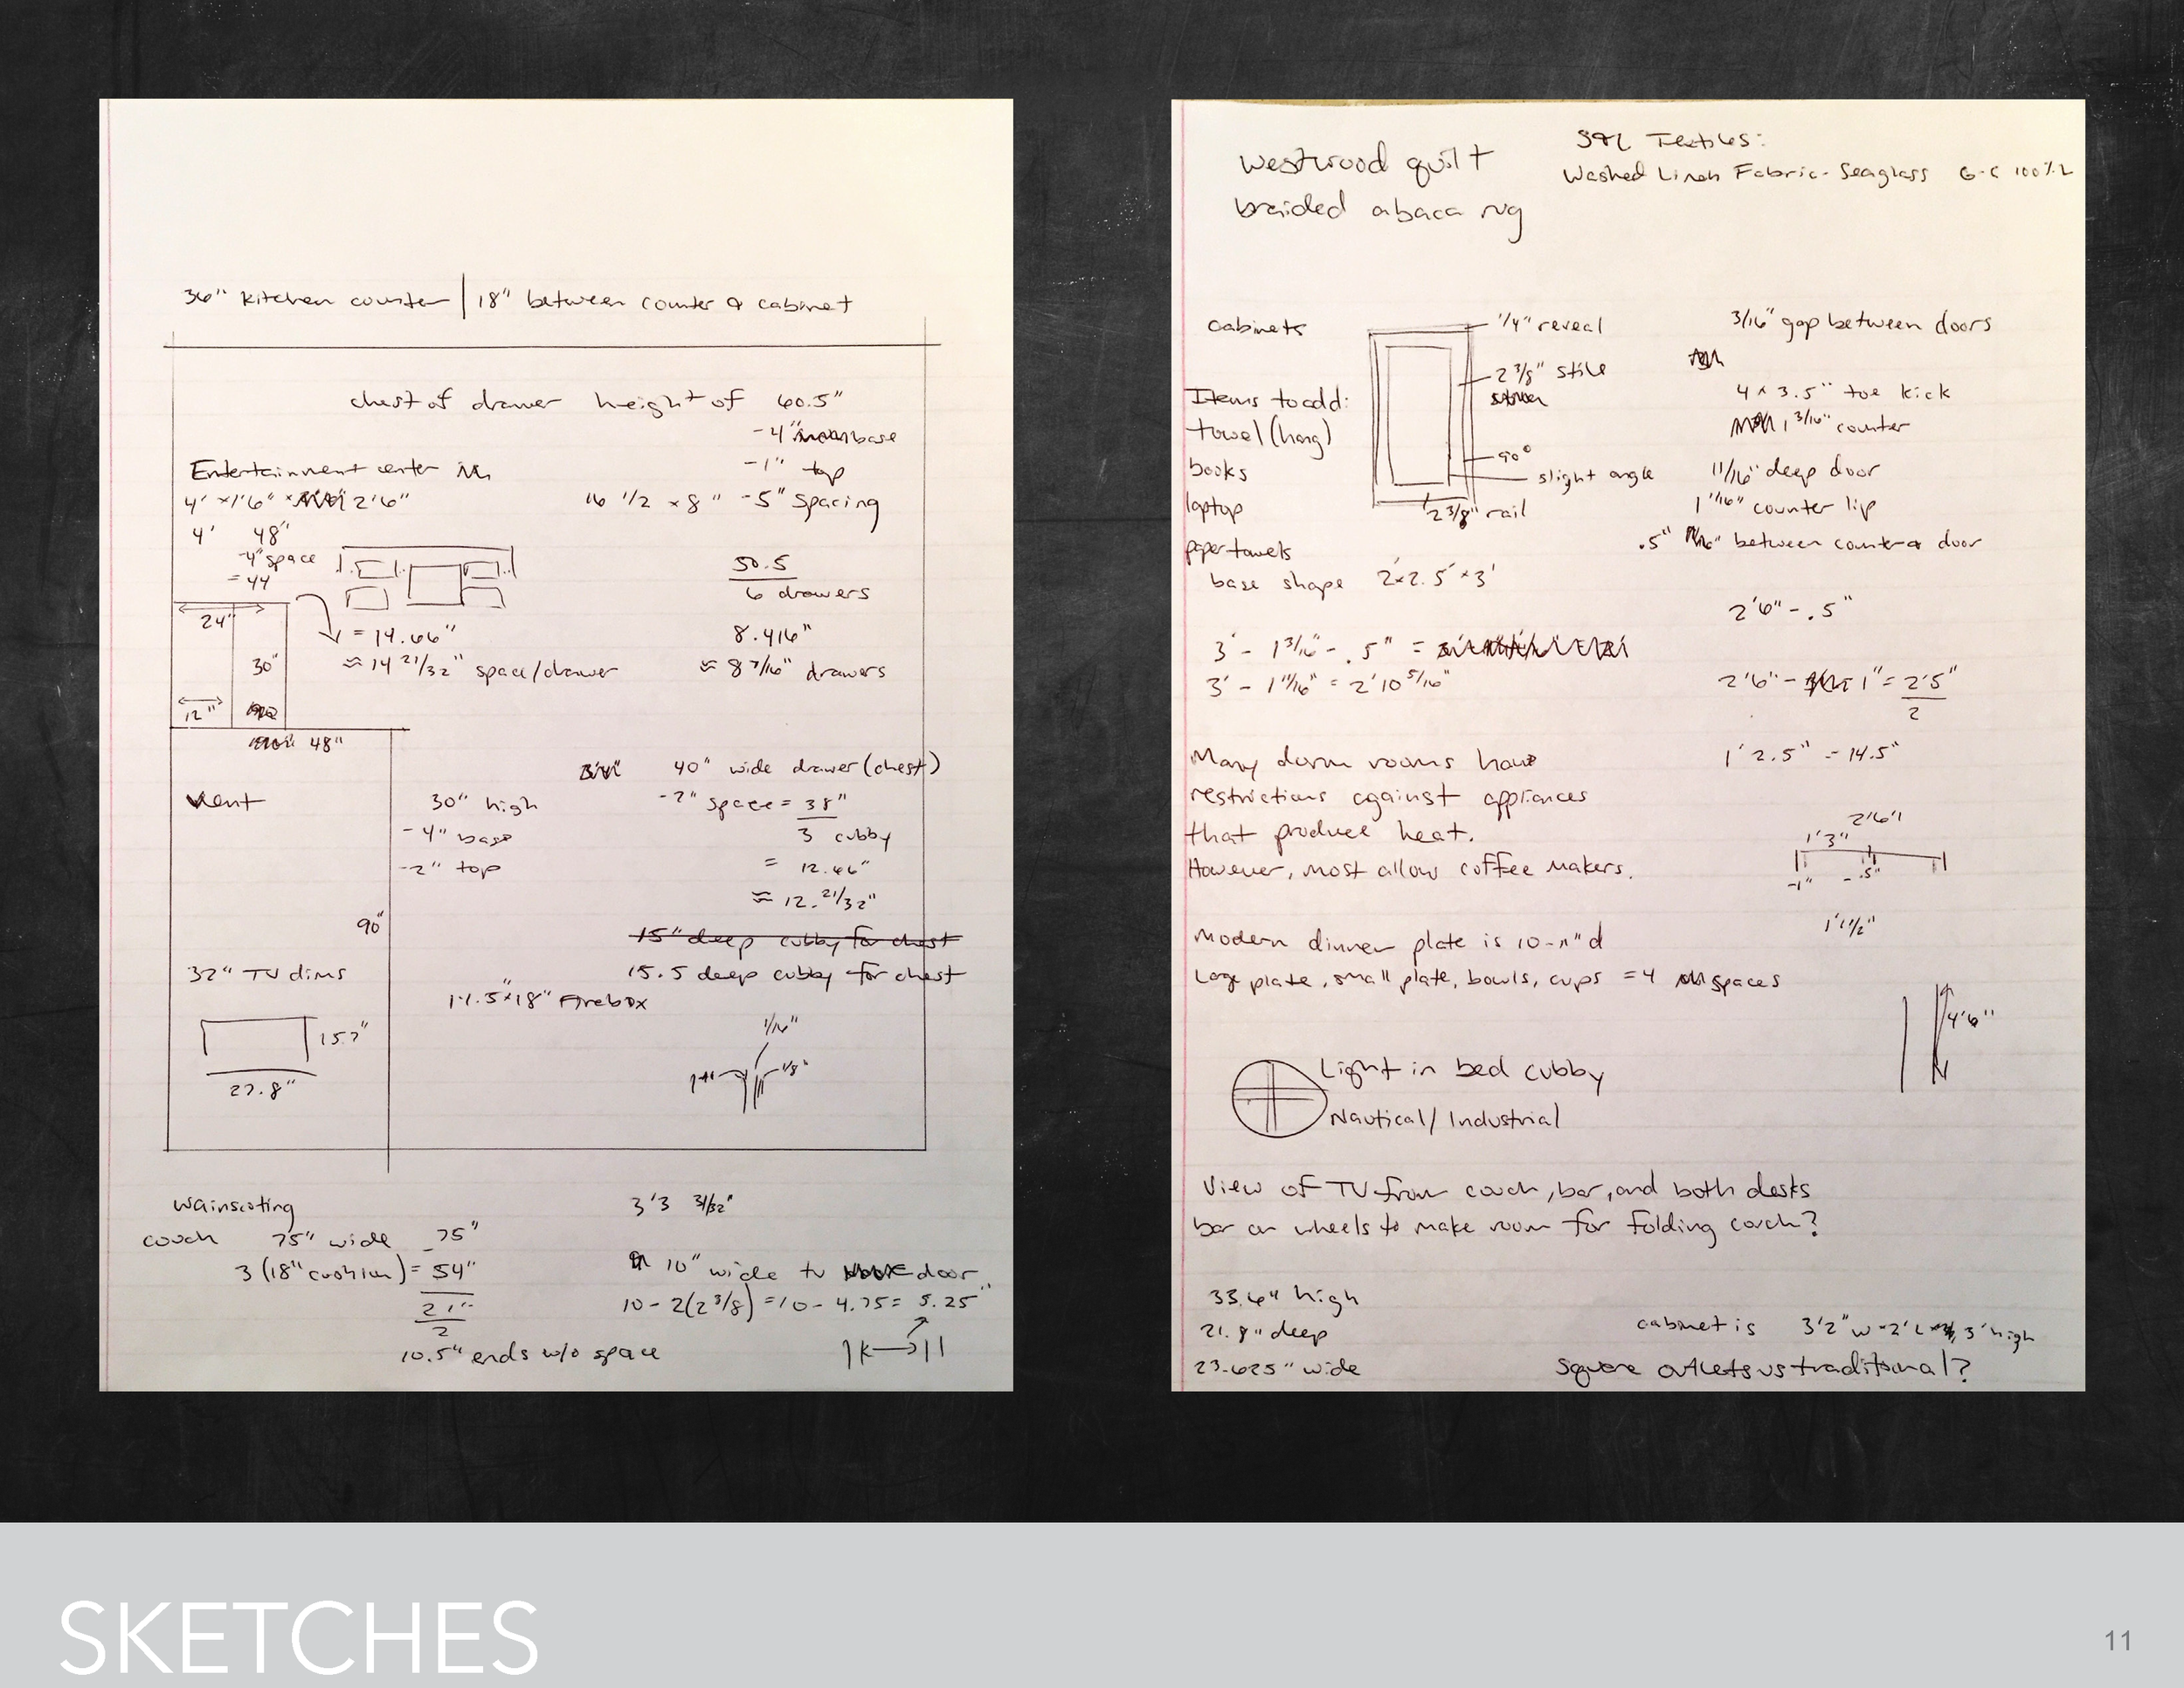 36" kitchen counter | 18" between counter & cabinet
chest of drawer height of 60.5"
-4" base
-1" top
-5" spacing
16 1/2 x 8"
50.5
6 drawers
8.416"
≈ 8 7/16" drawers
Entertainment center
4' x 1'6" x 2'6"
4' 48"
-4" space
= 44
= 14.66"
≈ 14 21/32" space/drawer
24"
30"
12"
48"
40" wide drawer (chest)
-2" space = 38"
3 cubby
= 12.66"
≈ 12. 21/32"
15" deep cubby for chest
15.5 deep cubby for chest
vent
30" high
-4" base
-2" top
90"
32" TV dims
15.7"
27.8"
18" Firebox
1/16"
1/8"
wainscoting
couch 75" wide 75"
3 (18" cushion) = 54"
21"
2
10.5" ends w/o space
3'3 3/32"
10" wide tv door
10 - 2(2 3/8) = 10 - 4.75 = 5.25"
westwood quilt
braided abaca rug
Textiles:
Washed Linen Fabric - Seaglass G-C 100% L
cabinets
1/4" reveal
2 3/8" stile
90°
slight angle
2 3/8" rail
3/16" gap between doors
4 x 3.5" toe kick
1 3/16" counter
11/16" deep door
1 1/16" counter lip
.5" between counter & door
Items to add:
towel (hang)
books
laptop
paper towels
base shape 2' x 2.5' x 3'
3' - 1 3/16" - .5" =
3' - 1 11/16" = 2'10 5/16"
2'6" - .5"
2'6" - 1" = 2'5"
2
1' 2.5" = 14.5"
Many dorm rooms have
restrictions against appliances
that produce heat.
However, most allow coffee makers.
2'6"
1'3"
-1" -.5"
1'1 1/2"
Modern dinner plate is 10-11" d
Large plate, small plate, bowls, cups = 4 spaces
4'6"
Light in bed cubby
Nautical/Industrial
View of TV from couch, bar, and both desks
bar on wheels to make room for folding couch?
33.6" high
21.8" deep
23.625" wide
cabinet is 3'2" w x 2' L x 3' high
Square outlets vs traditional?
SKETCHES
11